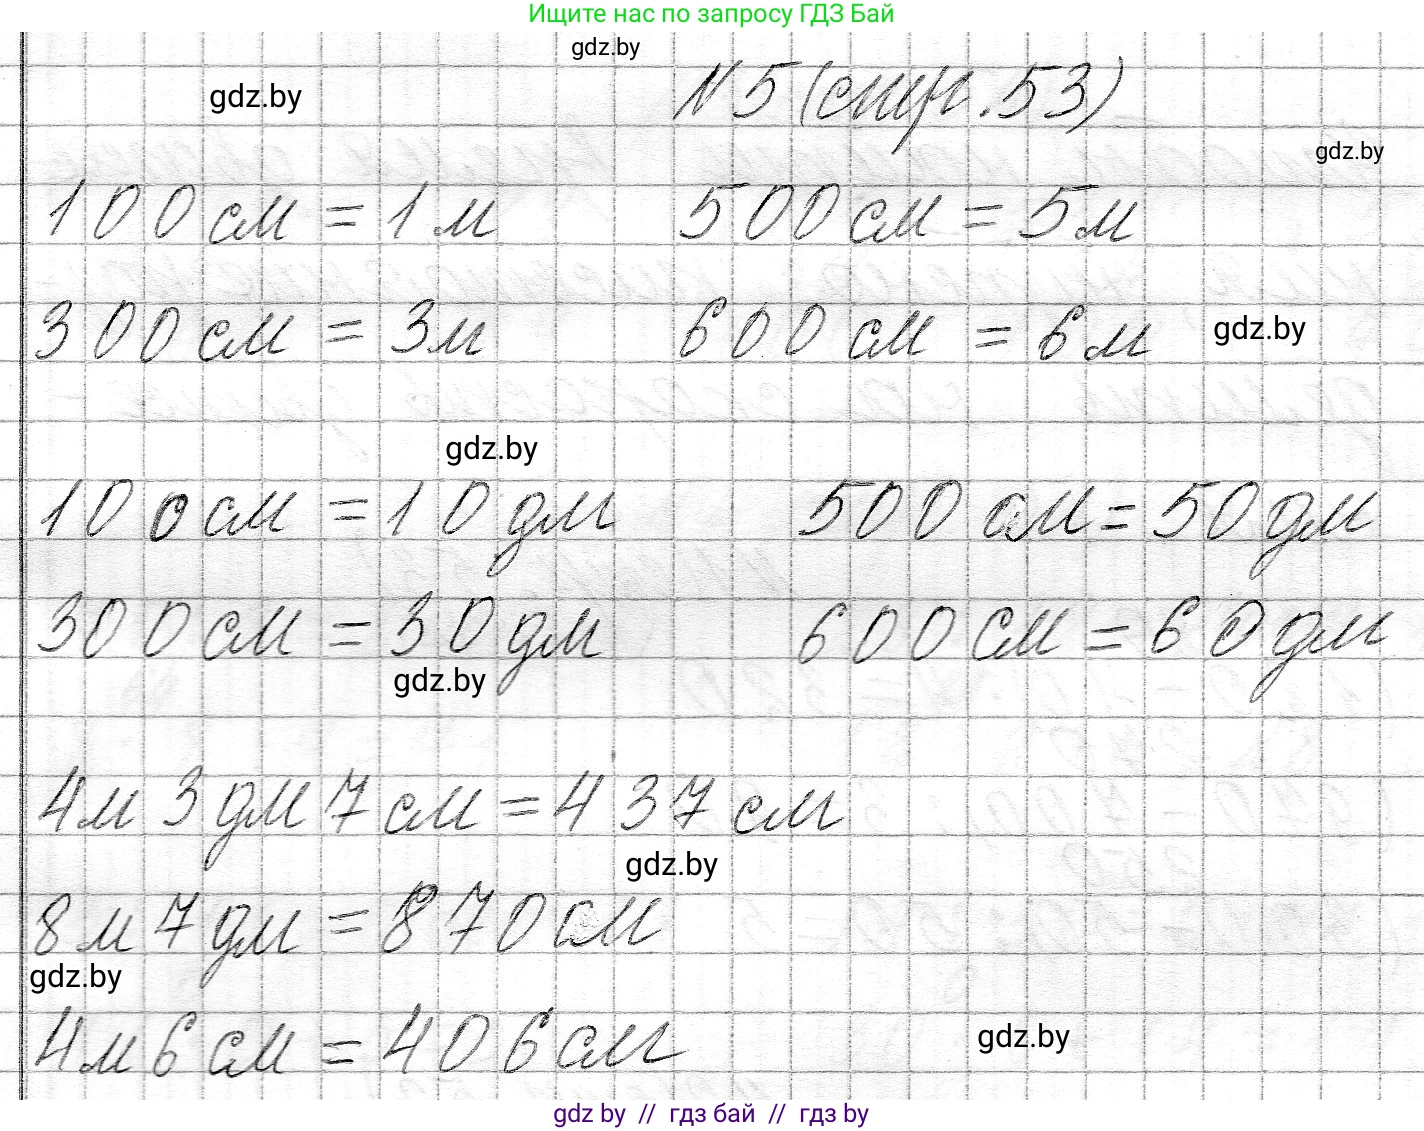 Ищите нас по запросу ГДЗ Бай
gdz.by
gdz.by
№5 (стр. 53)
gdz.by
100 см = 1 м 500 см = 5 м
300 см = 3 м 600 см = 6 м
gdz.by
gdz.by
100 см = 10 дм 500 см = 50 дм
300 см = 30 дм 600 см = 60 дм
gdz.by
4м 3 дм 7 см = 437 см
gdz.by
8 м 7 дм = 870 см
gdz.by
4м 6 см = 406 см
gdz.by
gdz by // гдз бай // гдз by